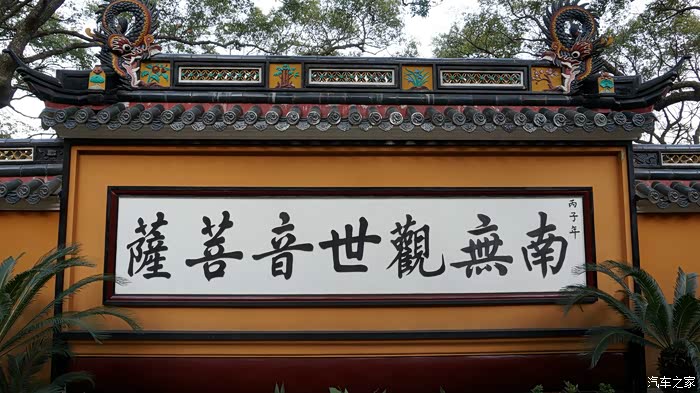 丙子年
南無觀世音菩薩
汽车之家